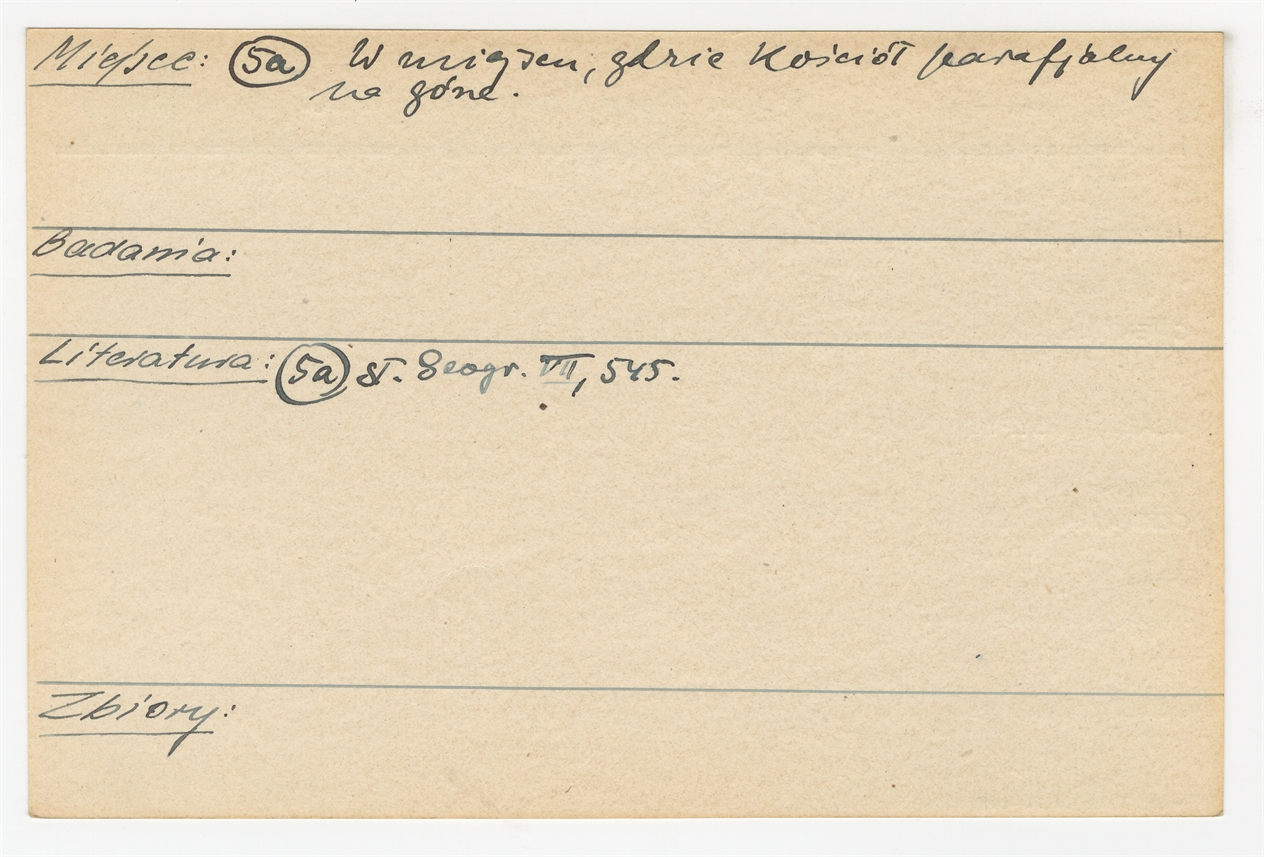 Miejsce: 5a W miejscu, gdzie Kościół parafjalny
na górze.
Badania:
Literatura: 5a Sł. Geogr. VII, 545.
Zbiory: